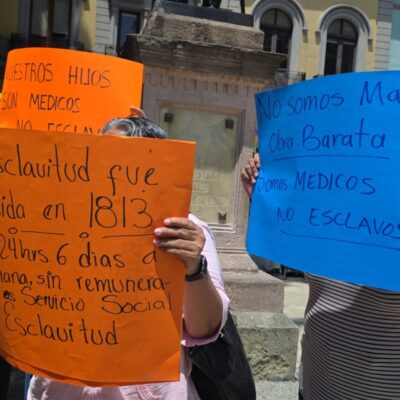 NUESTROS HIJOS
SON MEDICOS
NO ESCLAV
sclavitud fué
ida en 1813
24hrs 6 dias a
mana, sin remunera-
es Servicio Social
Esclavitud
No somos Ma
Obra Barata
Somos MEDICOS
NO ESCLAVOS